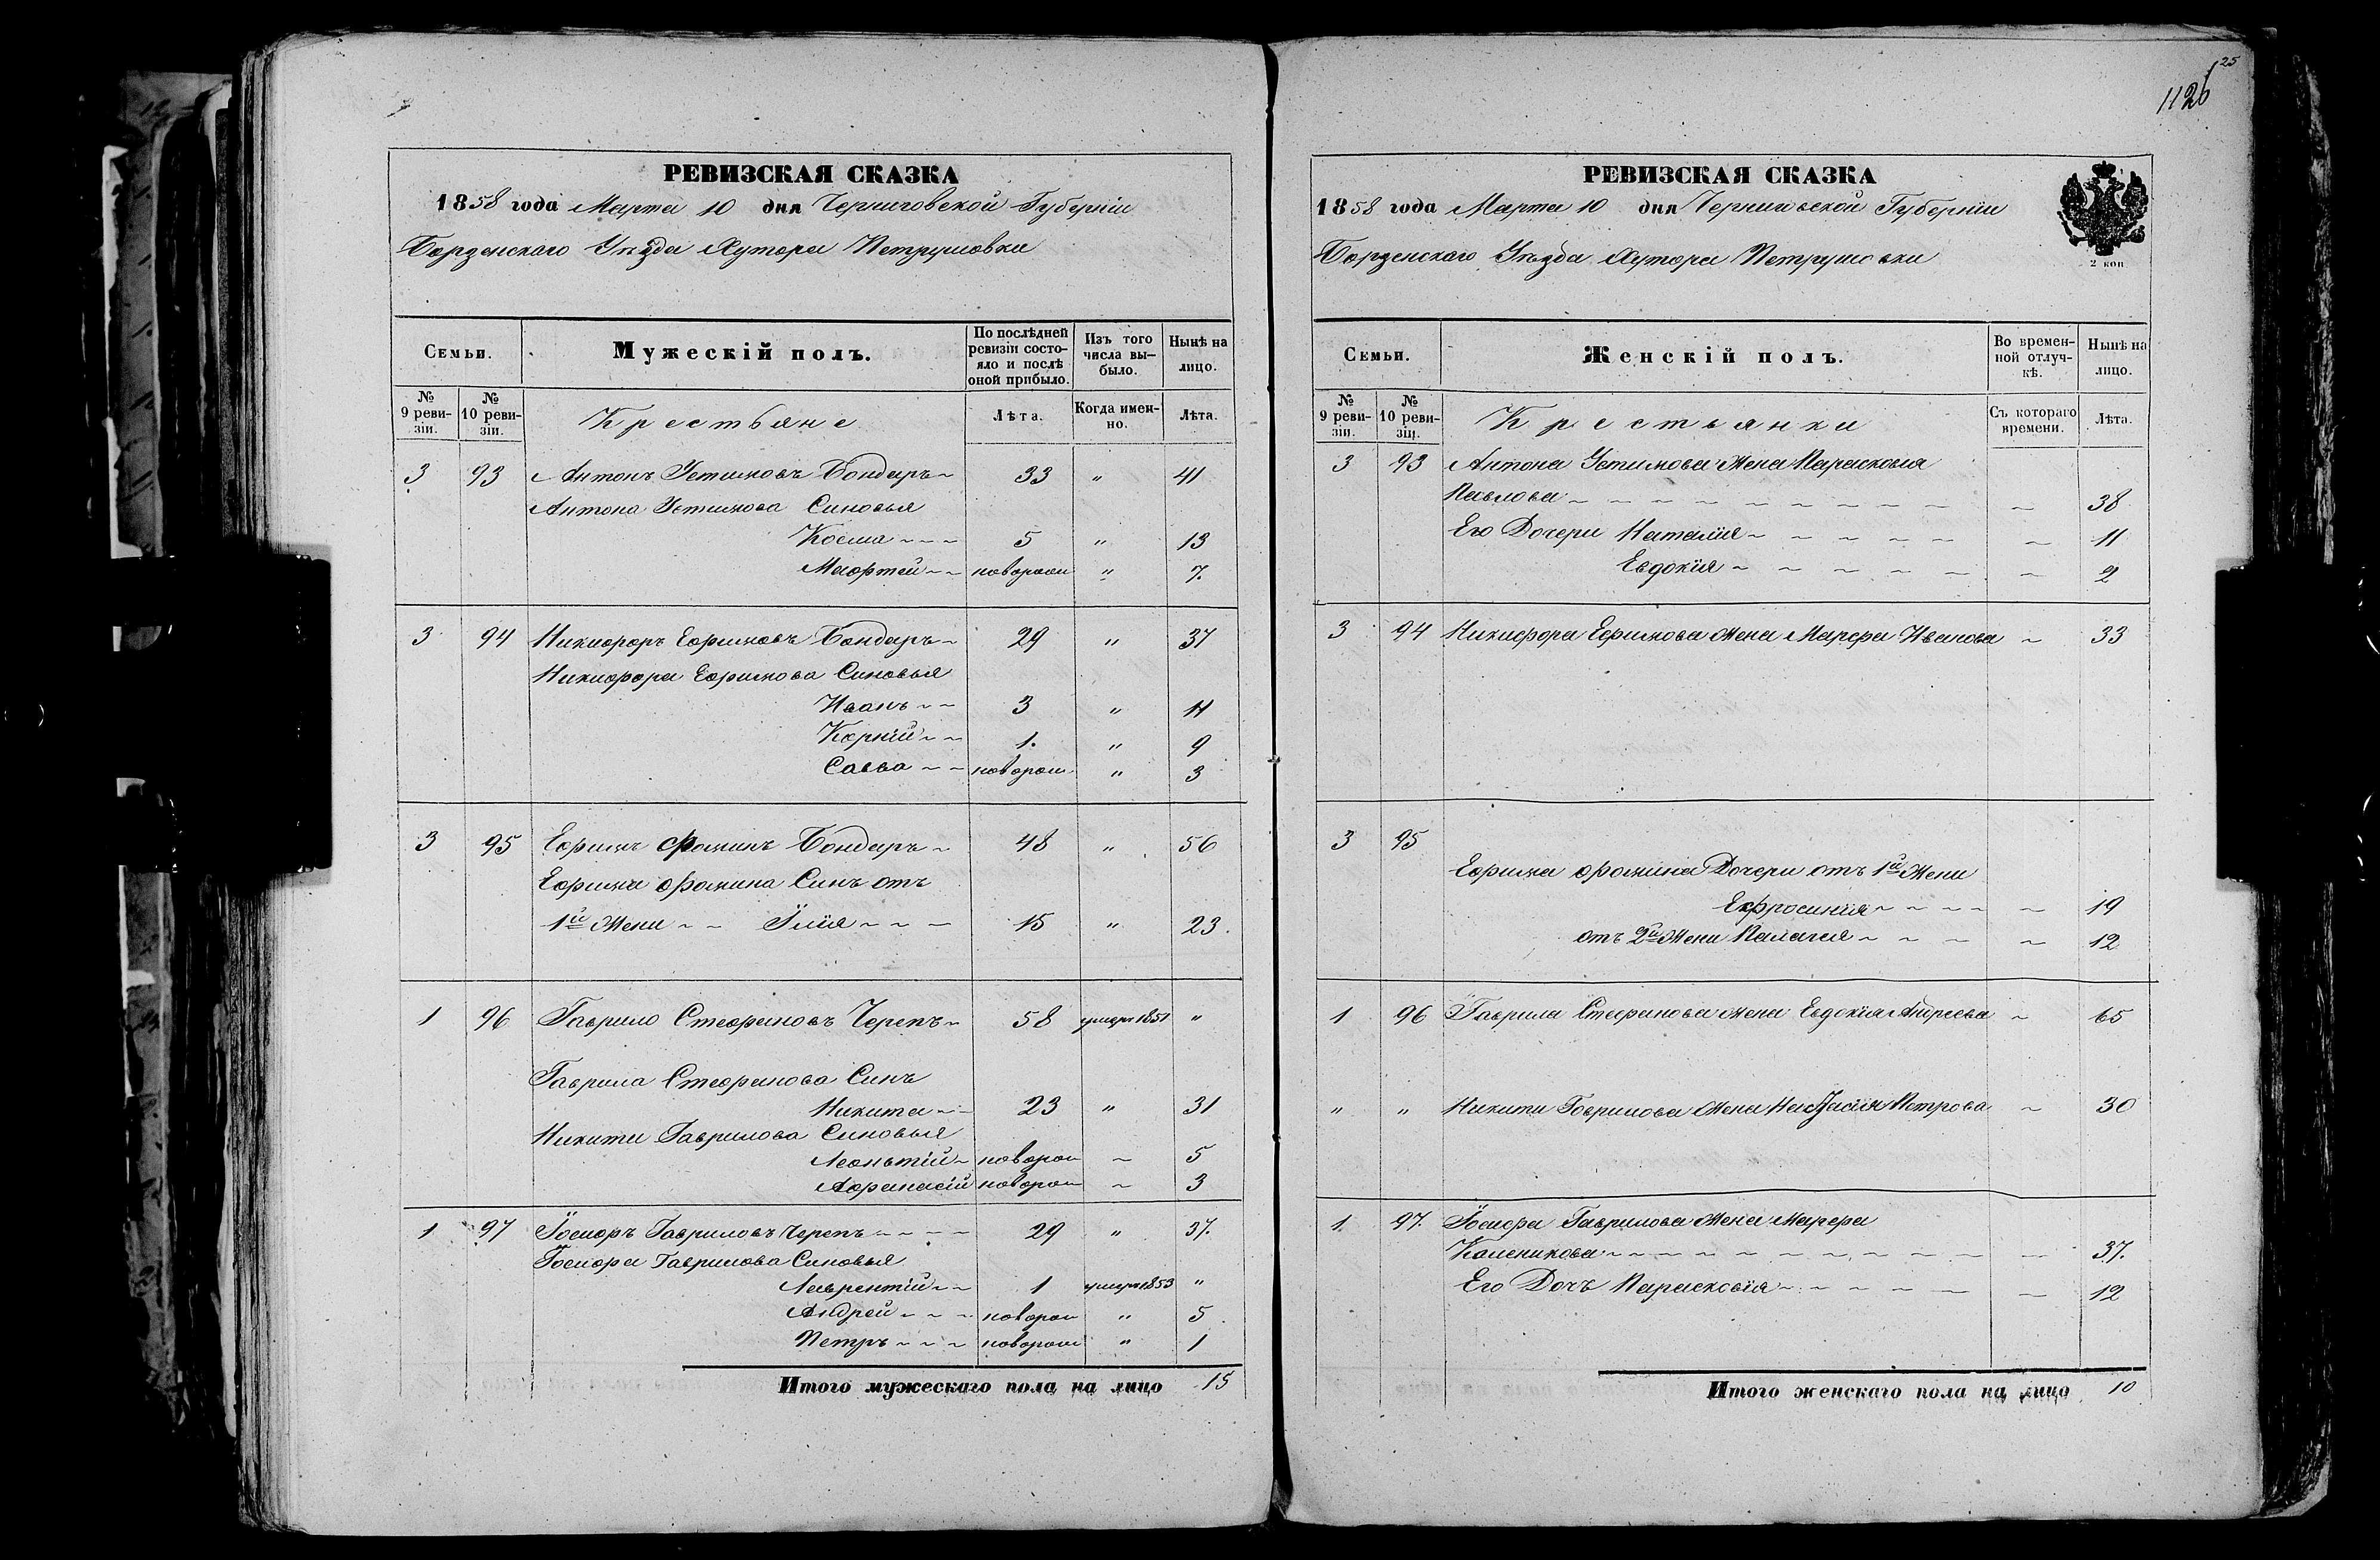 РЕВИЗСКАЯ СКАЗКА
1858 года Марта 10 дня Черниговской Губерніи
Борзенскаго Уѣзда Хутора Петрушовки
Семьи.
Мужескій полъ.
По послѣдней ревизіи состояло и послѣ оной прибыло.
Изъ того числа выбыло.
Нынѣ на лицо.
№ 9 ревизіи.
№ 10 ревизіи.
Крестьяне
Лѣта.
Когда именно.
Лѣта.
3 93 Антонъ Устимовъ Бондаръ 33 " 41
Антона Устимова Синовья
Косма 5 " 13
Мафтей новорож " 7.
3 94 Никифоръ Ефимовъ Бондаръ 29 " 37
Никифора Ефимова Синовья
Иванъ 3 " 11
Корнїй 1. " 9
Савва новорож " 3
3 95 Ефимъ Фоминъ Бондаръ 48 " 56
Ефима Фомина Синъ отъ
1й Жени Їлїя 15 " 23.
1 96 Гаврило Стефановъ Черепъ 58 умеръ 1851 "
Гаврила Стефанова Синъ
Никита 23 " 31
Никити Гаврилова Синовья
Леонтїй новорож ~ 5
Афанасїй новорож ~ 3
1 97 Їосифъ Гавриловъ Черепъ 29 " 37.
Їосифа Гаврилова Синовья
Лаврентїй 1 умеръ 1853 "
Андрей новорож " 5
Петръ новорож " 1
Итого мужескаго пола на лицо 15
25
1126
РЕВИЗСКАЯ СКАЗКА
1858 года Марта 10 дня Черниговской Губерніи
Борзенскаго Уѣзда Хутора Петрушовки
2 коп
Семьи.
Женскій полъ.
Во временной отлучкѣ.
Нынѣ на лицо.
№ 9 ревизіи.
№ 10 ревизіи.
Крестьянки
Съ котораго времени.
Лѣта.
3 93 Антона Устимова Жена Парасковія
Павлова ~ 38
Его Дочери Наталїя ~ 11
Евдокїя ~ 2
3 94 Никифора Ефимова Жена Марфа Иванова ~ 33
3 95
Ефима Фомина Дочери отъ 1й Жени
Ефросинїя ~ 19
отъ 2й Жени Палагея ~ 12
1 96 Гаврила Стефанова Жена Евдокїя Андреева ~ 65
" " Никити Гаврилова Жена Настасія Петрова ~ 30
1. 97. Їосифа Гаврилова Жена Марфа
Каленикова ~ 37.
Его Дочъ Парасковїя ~ 12
Итого женскаго пола на лицо 10